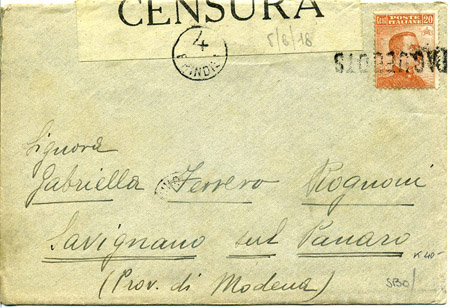 CENSURA
4
BRINDISI
5/8/18
POSTE ITALIANE
20
PAQUEBOTS
Signora
Gabriella Ferrero Rognoni
Savignano sul Panaro
(Prov. di Modena)
SBO/